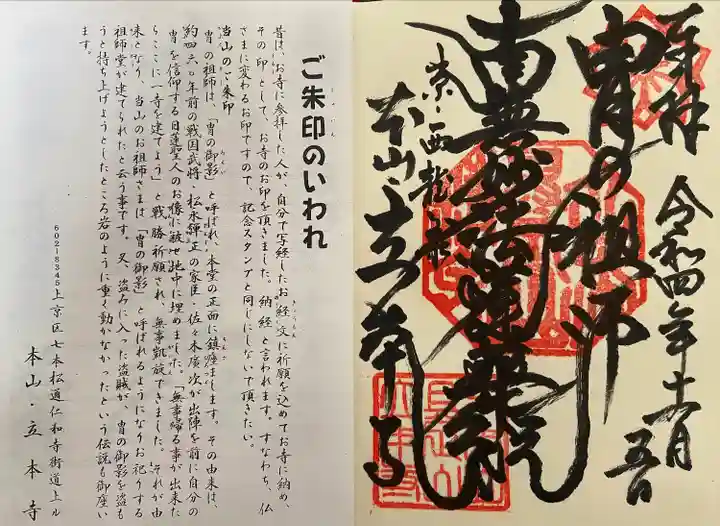 奉拝
令和四年十一月
五日
冑の祖師
南無妙法蓮華経
京・西龍華
本山・立本寺
ご朱印のいわれ
昔は、お寺に参拝した人が、自分で写経したお経文に祈願を込めてお寺に納め、
その印として、お寺のお印を頂きました。納経と言われます。すなわち、仏
さまに変わるお印ですので、記念スタンプと同じにしないで頂きたい。
当山のご朱印
冑の祖師は、「冑の御影」と呼ばれ、本堂の正面に鎮座まします。その由来は、
約四三〇年前の戦国武将・松永弾正の家臣・佐々木広次が出陣を前に自分の
冑を信仰する日蓮聖人のお像に被せ地中に埋めました。「無事帰る事が出来た
らここに一寺を建てよう」と戦勝祈願され、無事凱旋できました。それが由
来となり、当山のお祖師さまは「冑の御影」と呼ばれるようになりお祀りする
祖師堂が建てられたと云う事です。又、盗みに入った盗賊が、冑の御影を盗も
うと持ち上げようとしたところ岩のように重く動かなかったという伝説も御座い
ます。
602-8345上京区七本松通仁和寺街道上ル
本山・立本寺